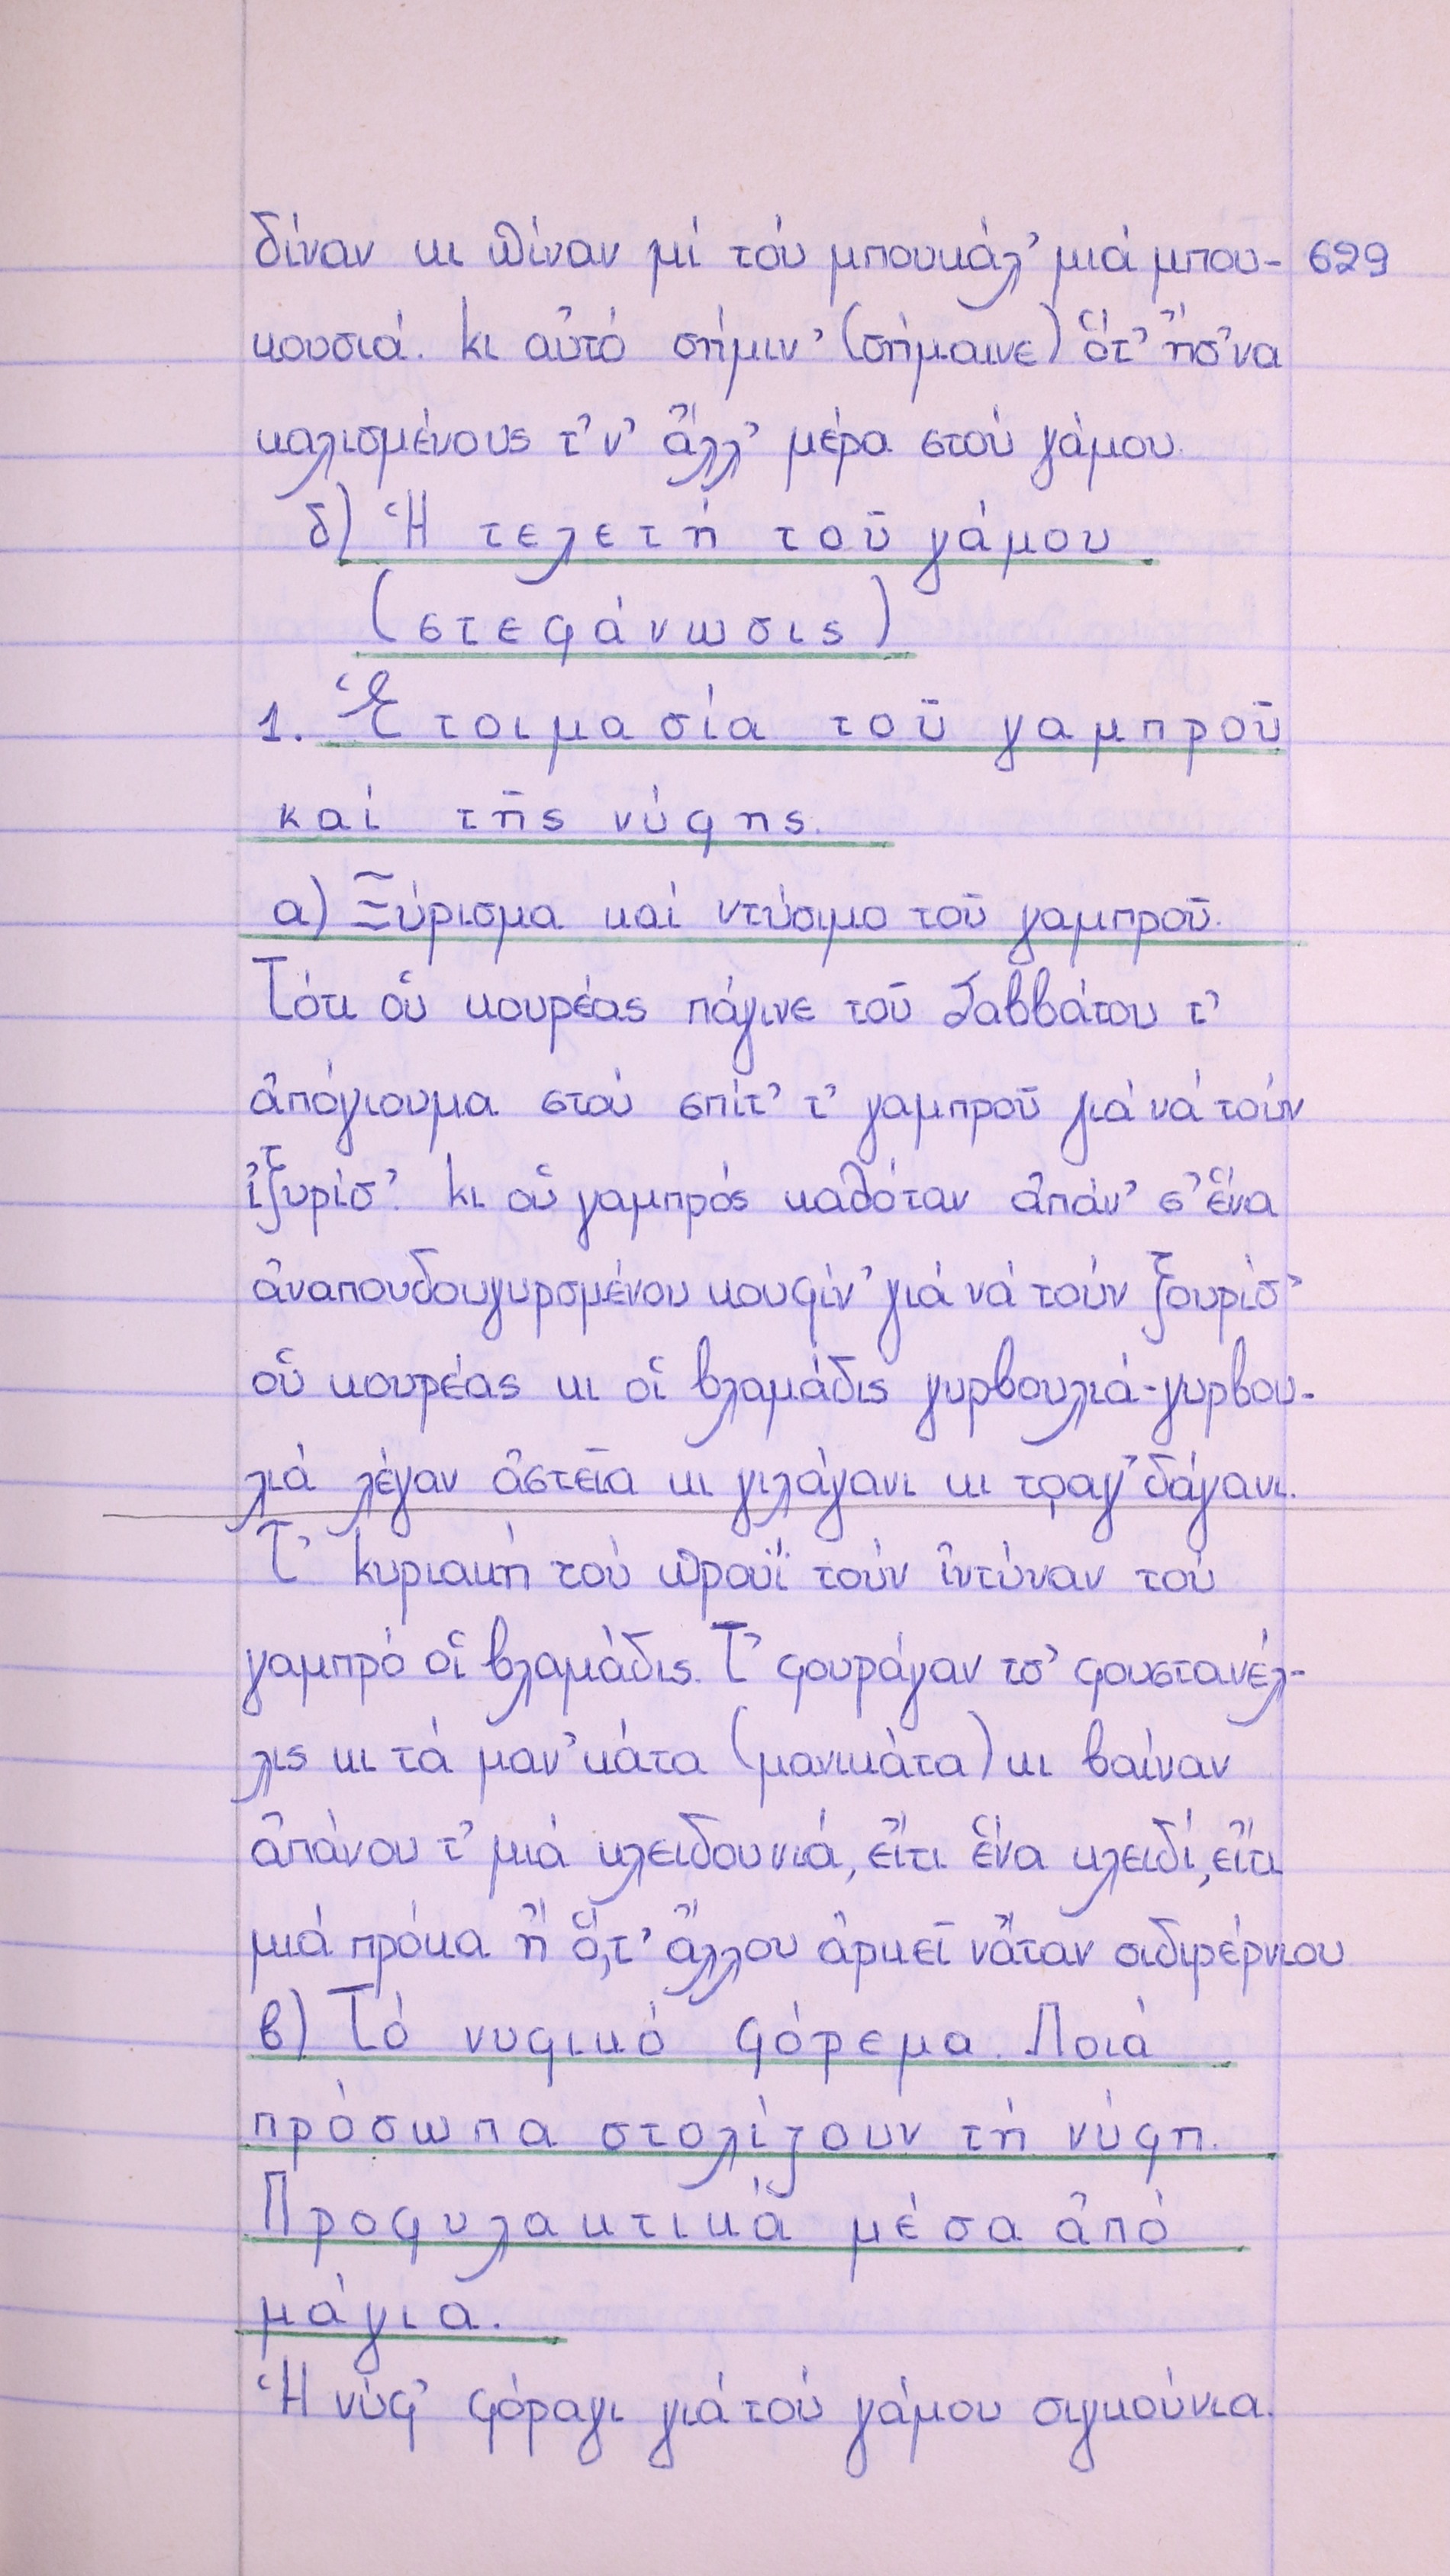 δίναν κι πίναν μί τού μπουκάλ' μιά μπου- 629
κουσιά. κι αὐτό σήμιν' (σήμαινε) ὅτ' ἤσ'να
καλισμένους τ'ν' ἄλλ' μέρα στού γάμου.
δ) Ἡ τελετή τοῦ γάμου
(στεφάνωσις)
1. Ἑτοιμασία τοῦ γαμπροῦ
καί τῆς νύφης.
α) Ξύρισμα καί ντύσιμο τοῦ γαμπροῦ.
Τότι οὑ κουρέας πάγινε τοῦ Σαββάτου τ'
ἀπόγιουμα στού σπίτ' τ' γαμπροῦ γιά νά τούν
ἰξυρίσ'. κι οὑ γαμπρός καθόταν ἀπάν' σ' ἕνα
ἀναπουδουγυρσμένου κουφίν' γιά νά τούν ξουρίσ'
οὑ κουρέας κι οἱ βλαμάδις γυρβουλιά-γυρβου-
λιά λέγαν ἀστεῖα κι γιλάγανι κι τραγ'δάγανι.
Τ' κυριακή τού πρωΐ τούν ἰντύναν τού
γαμπρό οἱ βλαμάδις. Τ' φουράγαν τσ' φουστανέλ-
λις κι τά μαν'κάτα (μανικάτα) κι βαίναν
ἀπάνου τ' μιά κλειδουνιά, εἴτι ἕνα κλειδί, εἴτι
μιά πρόκα ἤ ὅ,τ' ἄλλου ἀρκεῖ νἄταν σιδιρέρνιου
β) Τό νυφικό φόρεμα. Ποιά
πρόσωπα στολίζουν τή νύφη.
Προφυλακτικά μέσα ἀπό
μάγια.
Ἡ νύφ' φόραγι γιά τού γάμου σιγκούνια.